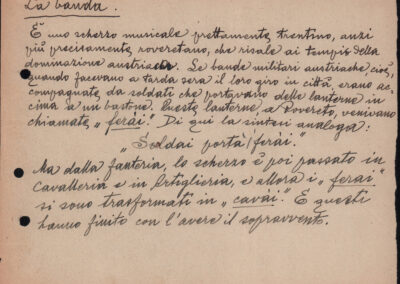 La banda.
È uno scherzo musicale prettamente trentino, anzi
più precisamente roveretano, che risale ai tempi della
dominazione austriaca. Le bande militari austriache, cioè,
quando facevano a tarda sera il loro giro in città, erano ac=
compagnate da soldati che portavano delle lanterne in
cima a un bastone. Queste lanterne, a Rovereto, venivano
chiamate „ferài". Di qui la sintesi analoga:
„Soldai portà/ferài."
Ma dalla fanteria, lo scherzo è poi passato in
Cavalleria e in Artiglieria, e allora i „ferai"
si sono trasformati in „cavài". E questi
hanno finito con l'avere il sopravvento.